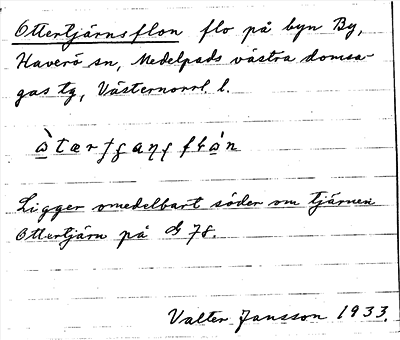 Ottertjärnsflon flo på byn By,
Haverö sn, Medelpads västra domsa-
gas tg, Västernorrl. l.
Ligger omedelbart söder om tjärnen
Ottertjärn på d 78.
Valter Jansson 1933.